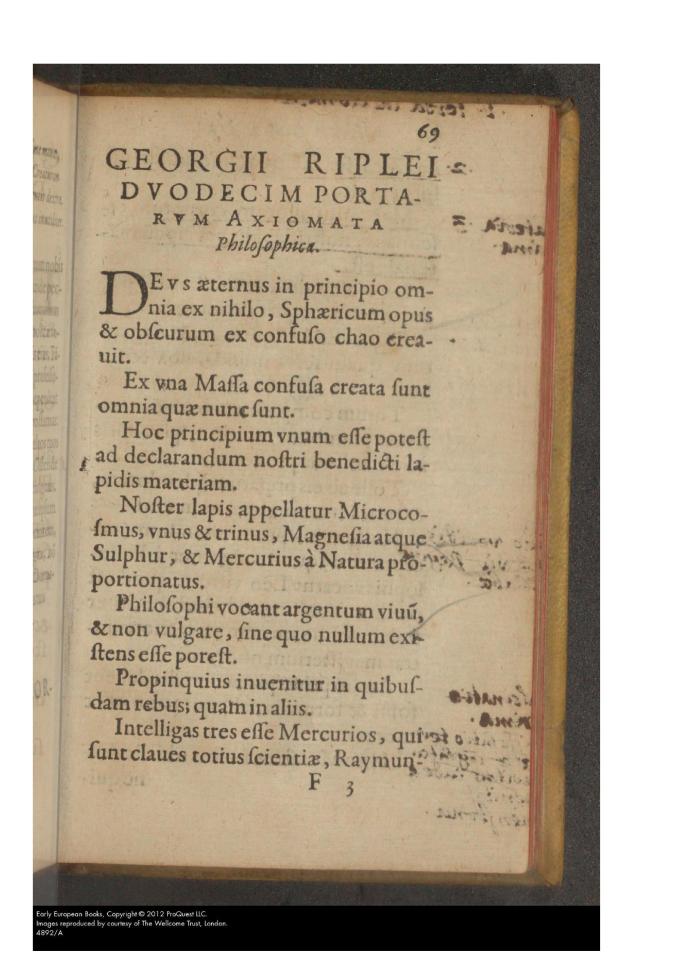 69
GEORGII RIPLEI
DVODECIM PORTA-
RVM AXIOMATA
Philoſophica.
DEVS æternus in principio om-
nia ex nihilo, Sphæricum opus
& obſcurum ex confuſo chao crea-
uit.
Ex vna Maſſa confuſa creata ſunt
omnia quæ nunc ſunt.
Hoc principium vnum eſſe poteſt
ad declarandum noſtri benedicti la-
pidis materiam.
Noſter lapis appellatur Microco-
ſmus, vnus & trinus, Magneſia atque
Sulphur, & Mercurius à Natura pro-
portionatus.
Philoſophi vocant argentum viuũ,
& non vulgare, ſine quo nullum exi-
ſtens eſſe poreſt.
Propinquius inuenitur in quibuſ-
dam rebus; quam in aliis.
Intelligas tres eſſe Mercurios, qui
ſunt claues totius ſcientiæ, Raymun-
F 3
Early European Books, Copyright © 2012 ProQuest LLC.
Images reproduced by courtesy of The Wellcome Trust, London.
4892/A